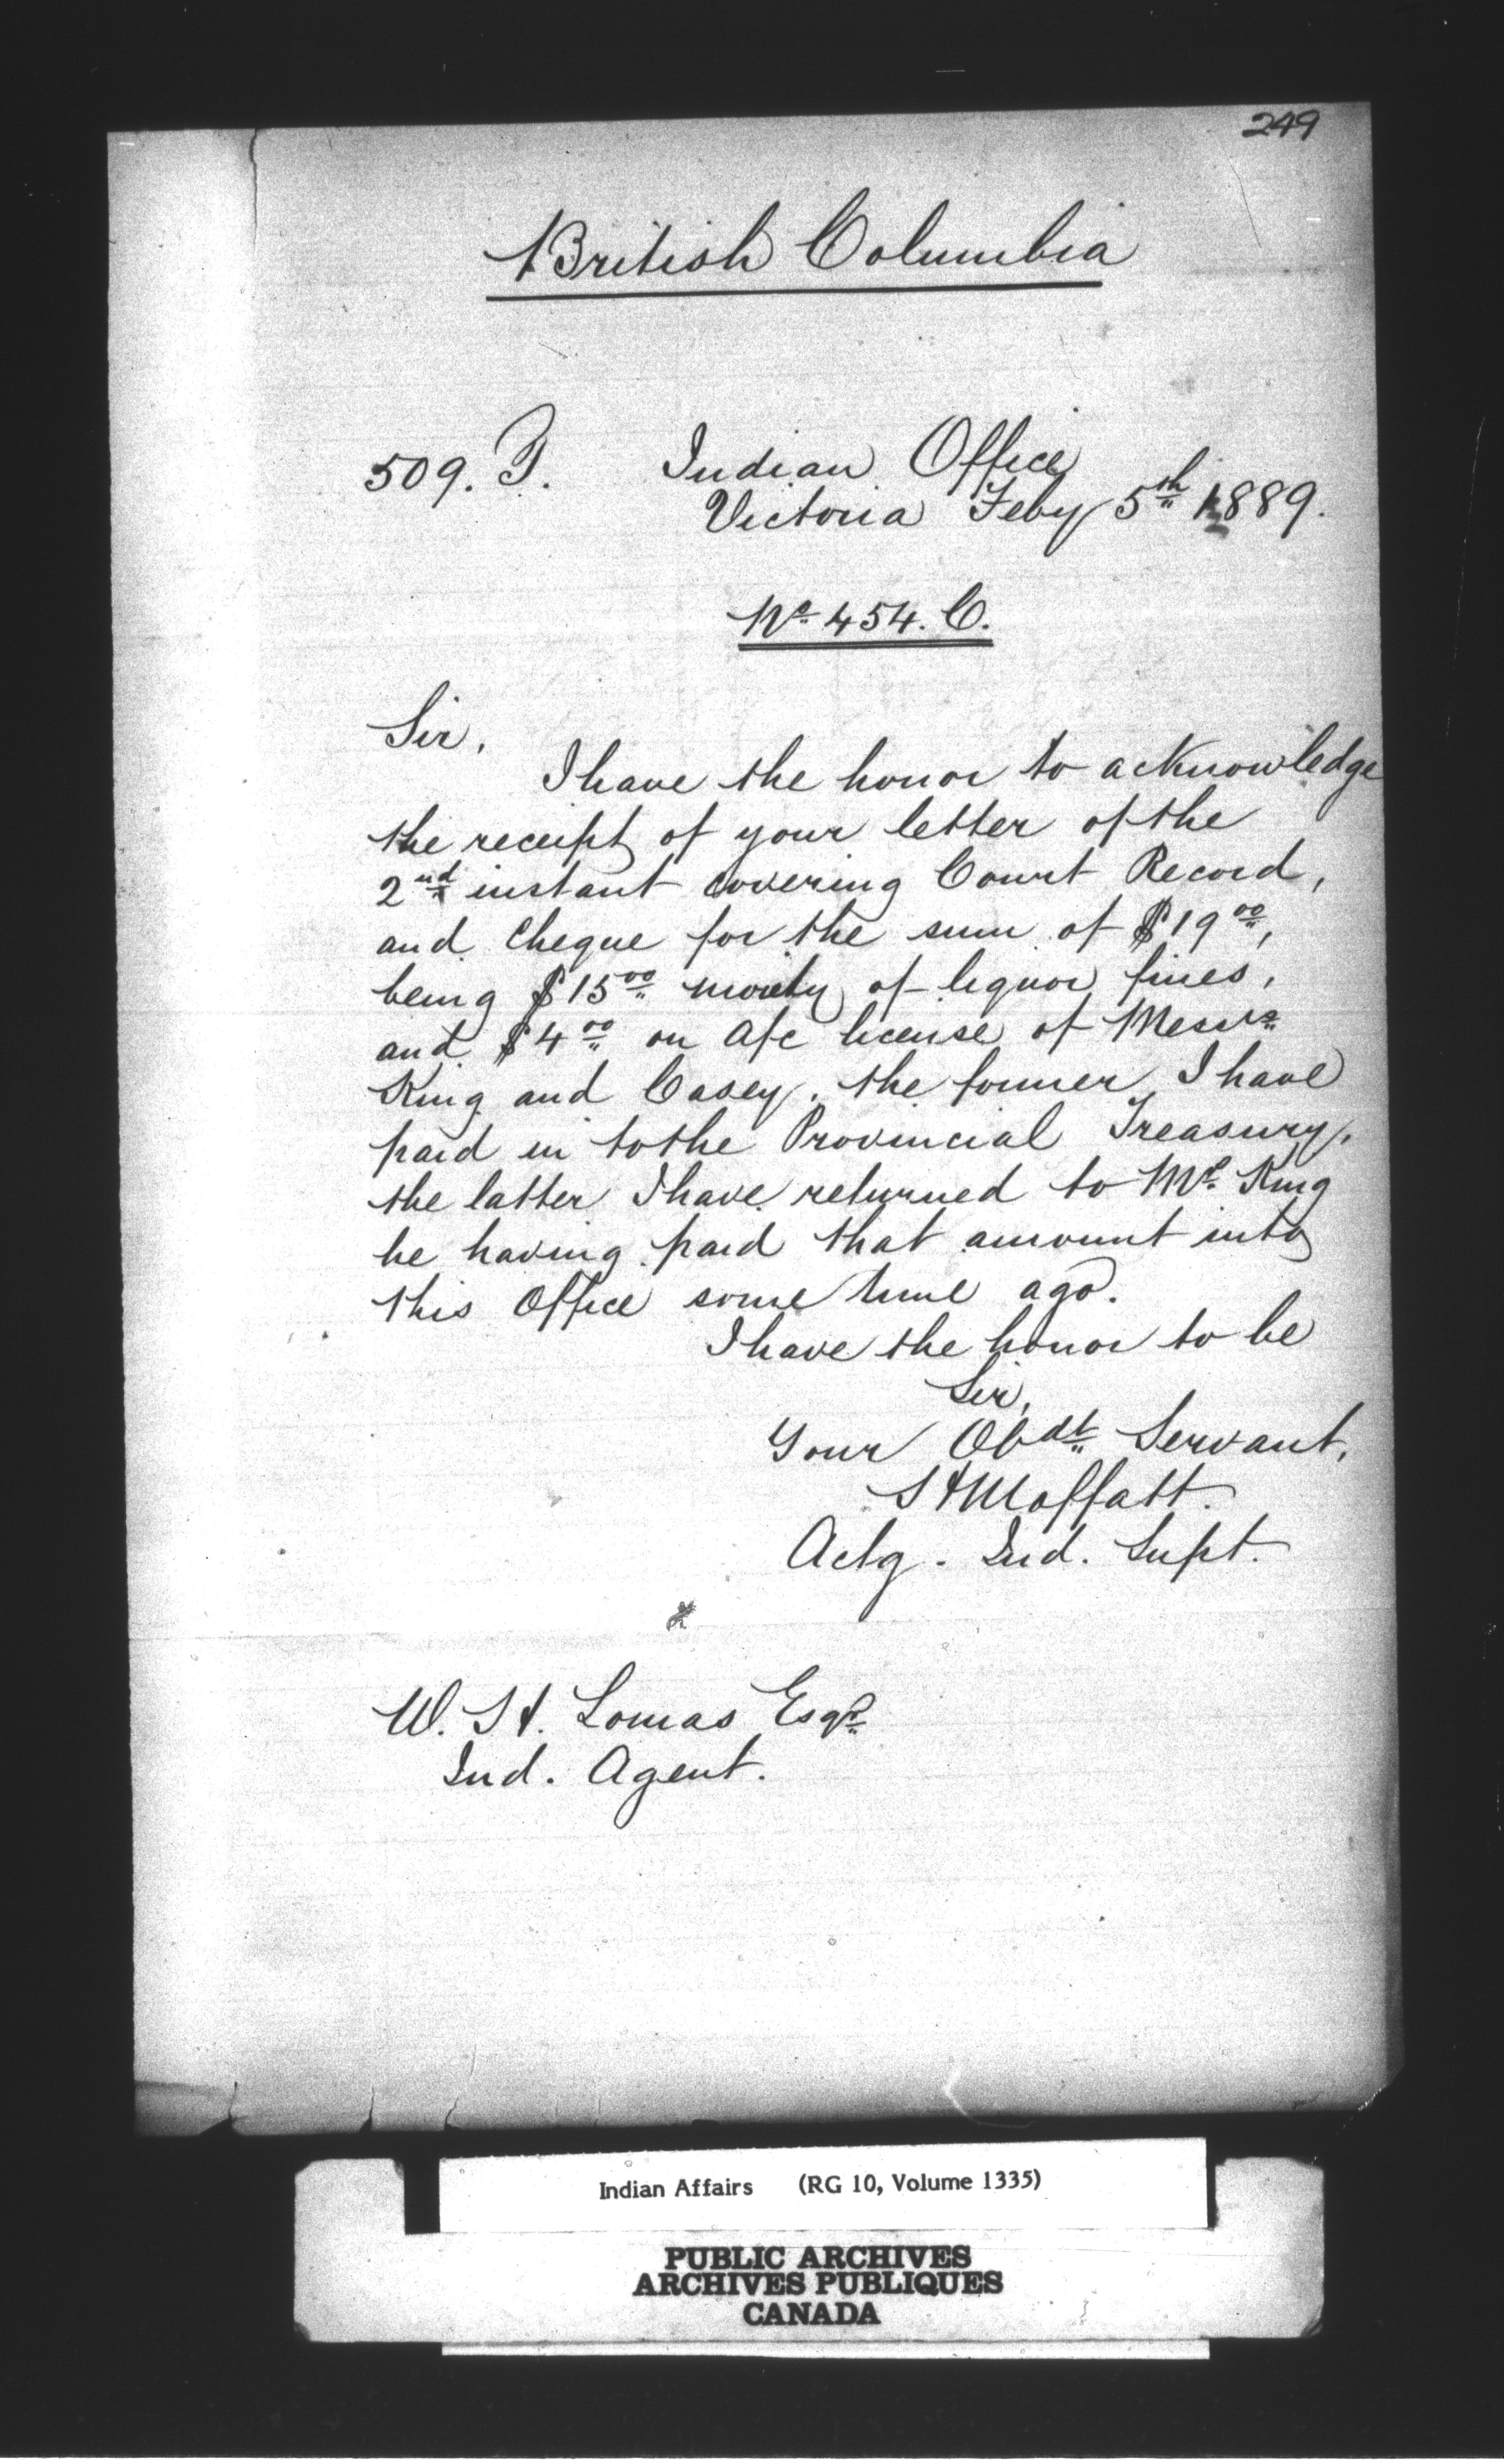 249
British Columbia
509. P. Indian Office
Victoria Feby 5th 1889.
No. 454. C.
Sir,
I have the honor to acknowledge
the receipt of your letter of the
2nd instant covering Court Record,
and Cheque for the sum of $19 00,
being $15 00 moiety of liquor fines,
and $4 00 on a/c license of Messrs
King and Casey. the former I have
paid in to the Provincial Treasury,
the latter I have returned to Mr. King
he having paid that amount into
this Office some time ago.
I have the honor to be
Sir,
Your Obdt Servant,
H Moffatt.
Actg. Ind. Supt.
W. H. Lomas Esqr
Ind. Agent.
Indian Affairs (RG 10, Volume 1335)
PUBLIC ARCHIVES
ARCHIVES PUBLIQUES
CANADA